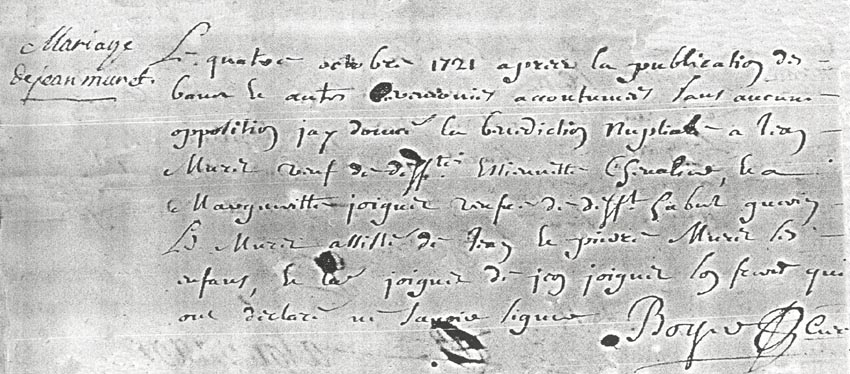 Mariage
de jean muret
Le quatre octobre 1721 apres la publication des
bans et autres ceremonies accoutumées sans aucune
opposition jay donné la benediction Nuptiale a Jean
Muret veuf de deffte Estiennette Chevaline, et a
Margueritte joignier veufve de defft gabriel
Le Muret assisté de Jean et pierre Muret ses
enfans, et la joignier de joignier son frere qui
ont déclaré ne savoir signer Curé